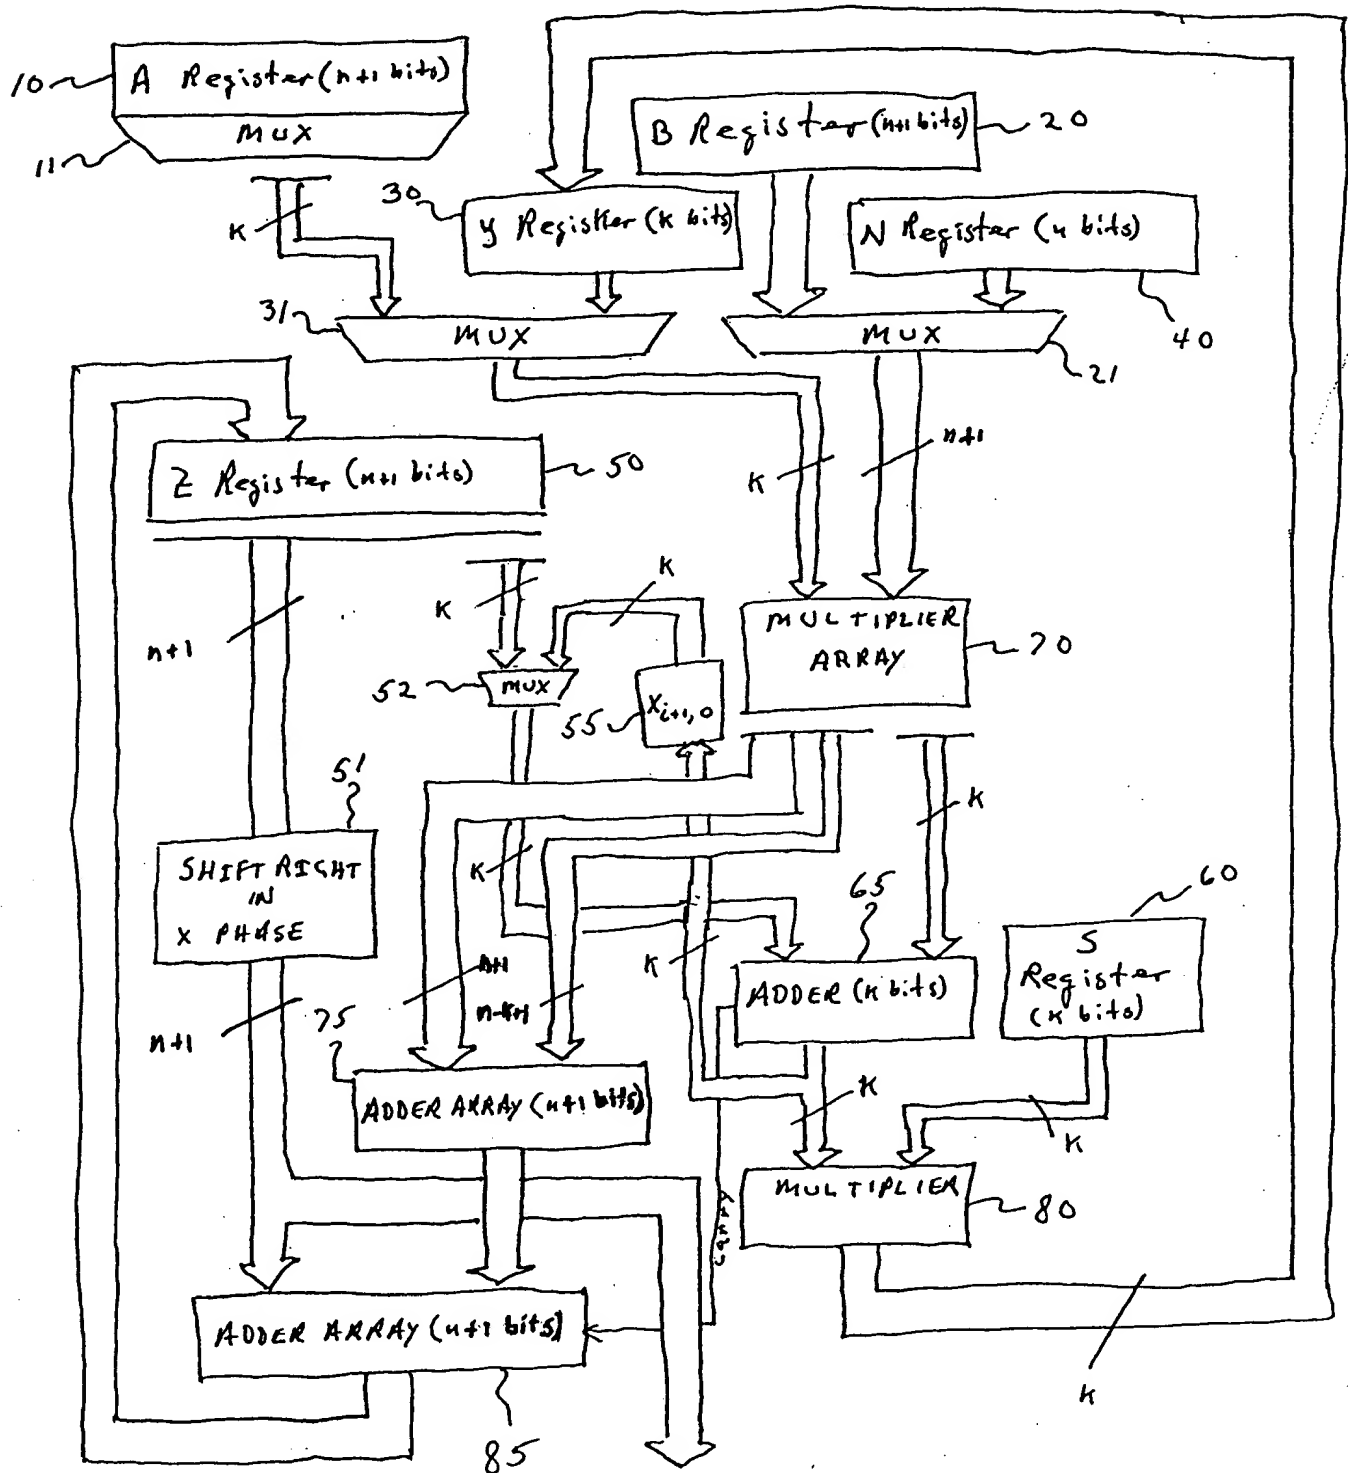 10
A Register (n+1 bits)
MUX
11
B Register (n+1 bits)
20
30
Y Register (k bits)
N Register (n bits)
40
K
31
MUX
MUX
21
Z Register (n+1 bits)
50
K
n+1
K
K
n+1
MULTIPLIER
ARRAY
70
52
MUX
55
Xi+1,0
51
SHIFT RIGHT
IN
X PHASE
K
K
65
60
S
Register
(k bits)
K
ADDER (k bits)
n+1
n-k+1
n+1
75
ADDER ARRAY (n+1 bits)
K
K
MULTIPLIER
80
CARRY
ADDER ARRAY (n+1 bits)
85
K